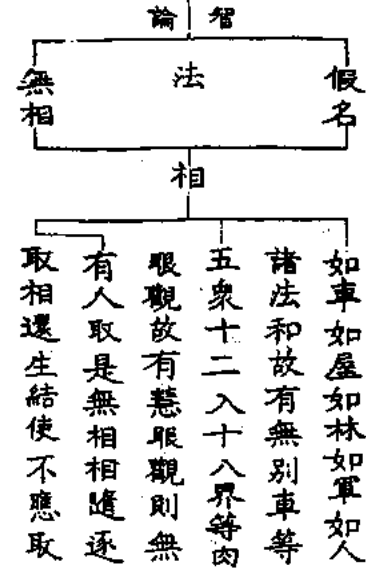 智論
假名
法
無相
相
如車如屋如林如軍如人
諸法和故有無別車等
五衆十二入十八界等肉
眼觀故有慧眼觀則無
有人取是無相相隨逐
取相還生結使不應取